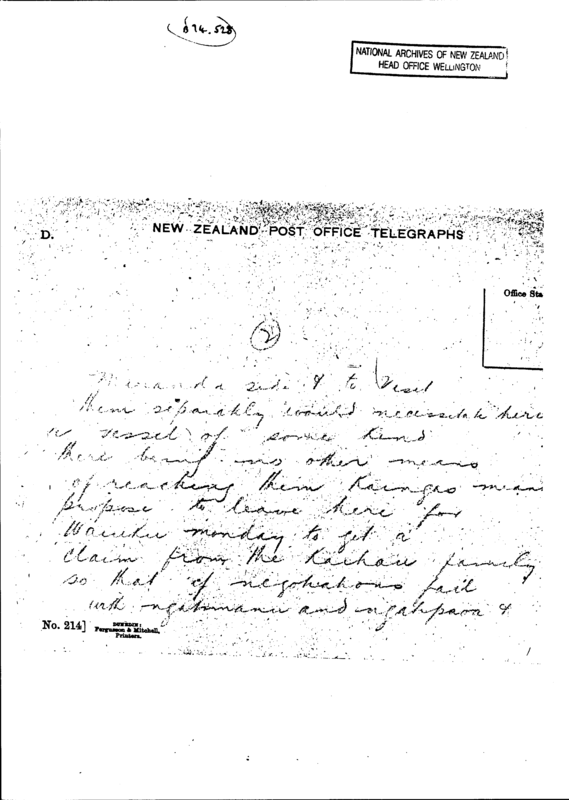 614.528
NATIONAL ARCHIVES OF NEW ZEALAND
HEAD OFFICE WELLINGTON
D.
NEW ZEALAND POST OFFICE TELEGRAPHS
Office Sta
2
Miranda side & to Visit
them separately would necessitate here
a vessel of some kind
there being no other means
of reaching them Kaingas mean
propose to leave here for
Waiuku monday to get a
claim from the Kaihau family
so that if negotiations fail
with ngatimanu and ngatipaoa &
No. 214]
DUNEDIN:
Fergusson & Mitchell,
Printers.